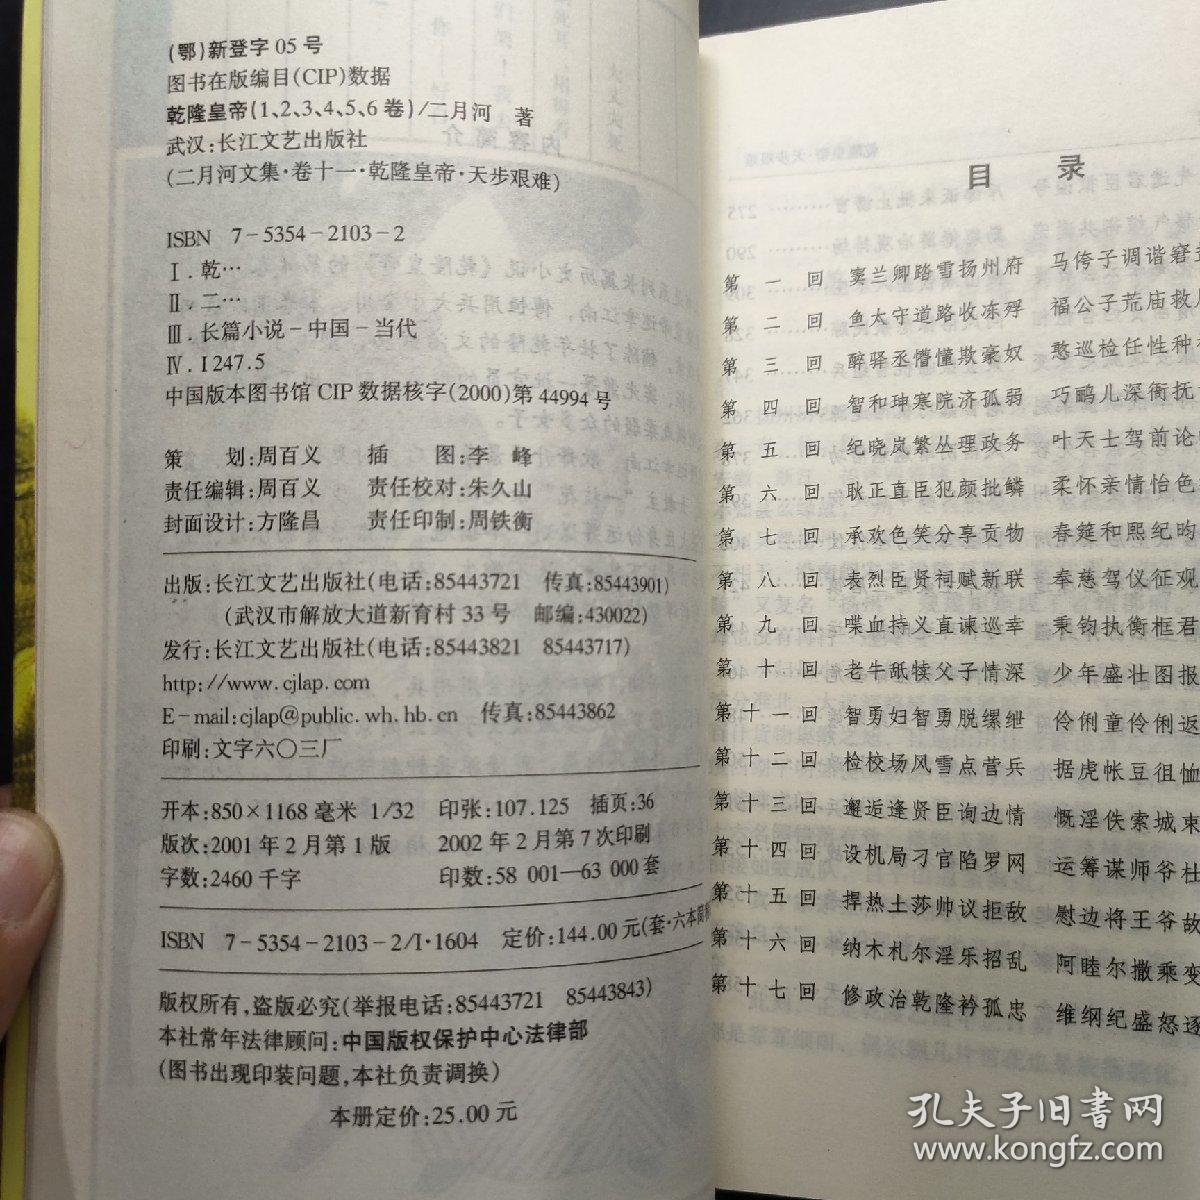 (鄂)新登字05号
图书在版编目(CIP)数据
乾隆皇帝(1、2、3、4、5、6卷)/二月河 著
武汉:长江文艺出版社
(二月河文集·卷十一·乾隆皇帝·天步艰难)
ISBN 7-5354-2103-2
Ⅰ.乾…
Ⅱ.二…
Ⅲ.长篇小说-中国-当代
Ⅳ.I247.5
中国版本图书馆CIP数据核字(2000)第44994号
策 划:周百义 插 图:李 峰
责任编辑:周百义 责任校对:朱久山
封面设计:方隆昌 责任印制:周铁衡
出版:长江文艺出版社(电话:85443721 传真:85443901)
(武汉市解放大道新育村33号 邮编:430022)
发行:长江文艺出版社(电话:85443821 85443717)
http://www.cjlap.com
E-mail:cjlap@public.wh.hb.cn 传真:85443862
印刷:文字六〇三厂
开本:850×1168毫米 1/32 印张:107.125 插页:36
版次:2001年2月第1版 2002年2月第7次印刷
字数:2460千字 印数:58 001—63 000套
ISBN 7-5354-2103-2/I·1604 定价:144.00元(套·六本
版权所有,盗版必究(举报电话:85443721 85443843)
本社常年法律顾问:中国版权保护中心法律部
(图书出现印装问题,本社负责调换)
本册定价:25.00元
目 录
第一回 窦兰卿踏雪扬州府 马侉子调谐窘
第二回 鱼太守道路收冻殍 福公子荒庙救
第三回 醉驿丞懵懂欺豪奴 憨巡检任性种
第四回 智和珅寒院济孤弱 巧鹂儿深衙抚
第五回 纪晓岚繁丛理政务 叶天士驾前论
第六回 耿正直臣犯颜批鳞 柔怀亲情怡色
第七回 承欢色笑分享贡物 春筵和熙纪昀
第八回 表烈臣贤祠赋新联 奉慈驾仪征观
第九回 喋血持义直谏巡幸 秉钧执衡框君
第十回 老牛舐犊父子情深 少年盛壮图报
第十一回 智勇妇智勇脱缧绁 伶俐童伶俐返
第十二回 检校场风雪点营兵 据虎帐豆徂恤
第十三回 邂逅逢贤臣询边情 慨淫佚索城
第十四回 设机局刁官陷罗网 运筹谋师爷杜
第十五回 捍热土莎帅议拒敌 慰边将王爷故
第十六回 纳木札尔淫乐招乱 阿睦尔撒乘变
第十七回 修政治乾隆衿孤忠 维纲纪盛怒逐
孔夫子旧书网
www.kongfz.com